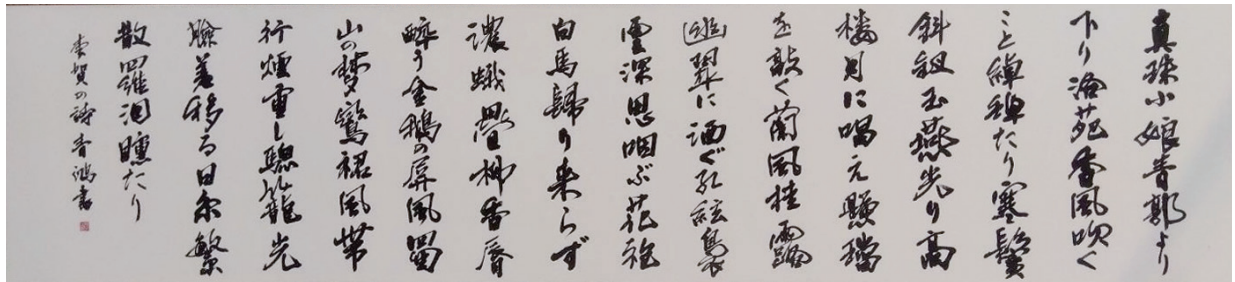 真珠小娘青郭より
下り洛苑香風吹く
こと綽綽たり寒鬢
斜釵玉燕光り高
楼月に唱え懸璫
を敲く蘭風桂露
幽翠に洒ぐ紅絃裊
雲深思咽ぶ花袍
白馬歸り来らず
濃蛾疊柳香唇
酔う金鵝の屏風蜀
山の夢鸞裾風帯
行煙重し驄籠光
臉差移る日糸繁
散羅洞曛たり
李賀の詩 青鴻書